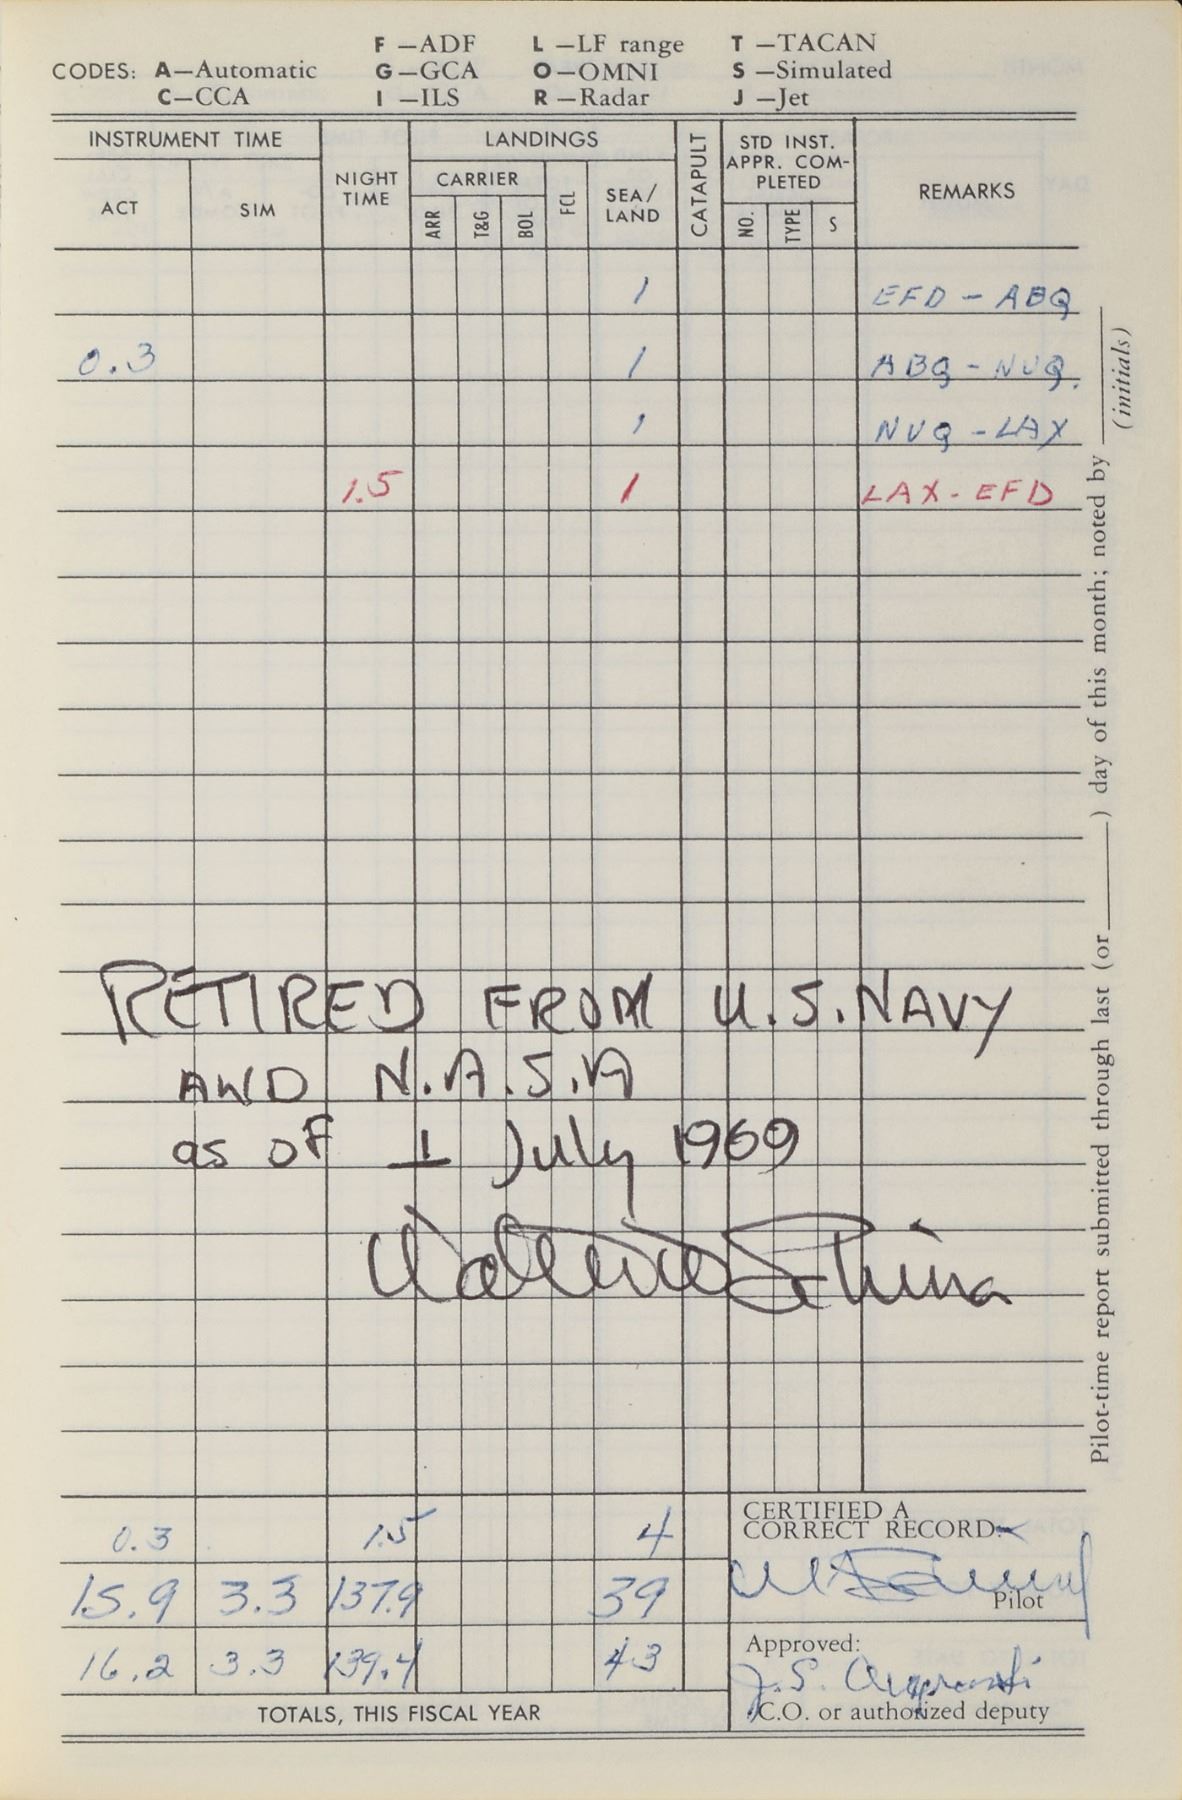 CODES: A—Automatic F—ADF L—LF range T—TACAN
C—CCA G—GCA O—OMNI S—Simulated
I—ILS R—Radar J—Jet
INSTRUMENT TIME NIGHT TIME LANDINGS CATAPULT STD INST. APPR. COM-PLETED REMARKS
ACT SIM CARRIER FCL SEA/LAND
ARR T&G BOL NO. TYPE S
1 EFD - ABQ
0.3 1 ABQ - NUQ.
1 NUQ - LAX
1.5 1 LAX - EFD
RETIRED FROM U.S. NAVY
AND N.A.S.A
as of 1 July 1969
Walter M Schirra
0.3 1.5 4
15.9 3.3 137.9 39
16.2 3.3 139.4 43
TOTALS, THIS FISCAL YEAR
CERTIFIED A
CORRECT RECORD:
Pilot
Approved:
J. S.
C.O. or authorized deputy
Pilot-time report submitted through last (or ) day of this month; noted by (initials)